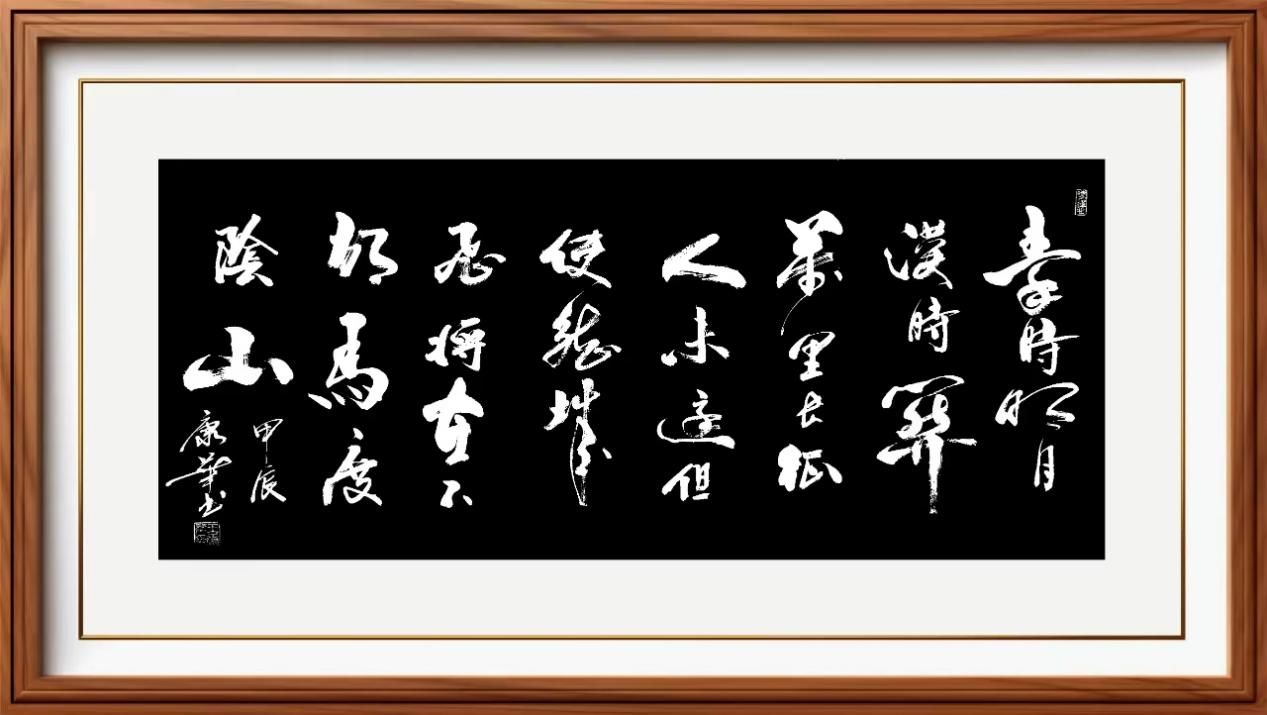 秦時明月
漢時關
萬里長征
人未還但
使龍城
飛將在不
胡馬度
陰山
甲辰
康華書